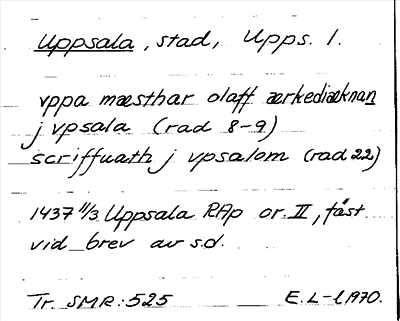 Uppsala, stad, Upps. l.
vppa mæsthar olaff ærkediæknan
j vpsala (rad 8-9)
scriffuath j vpsalom (rad 22)
1437 11/3 Uppsala RAp or. II, fäst
vid brev av s.d.
Tr. SMR: 525 E. L-l 1970.